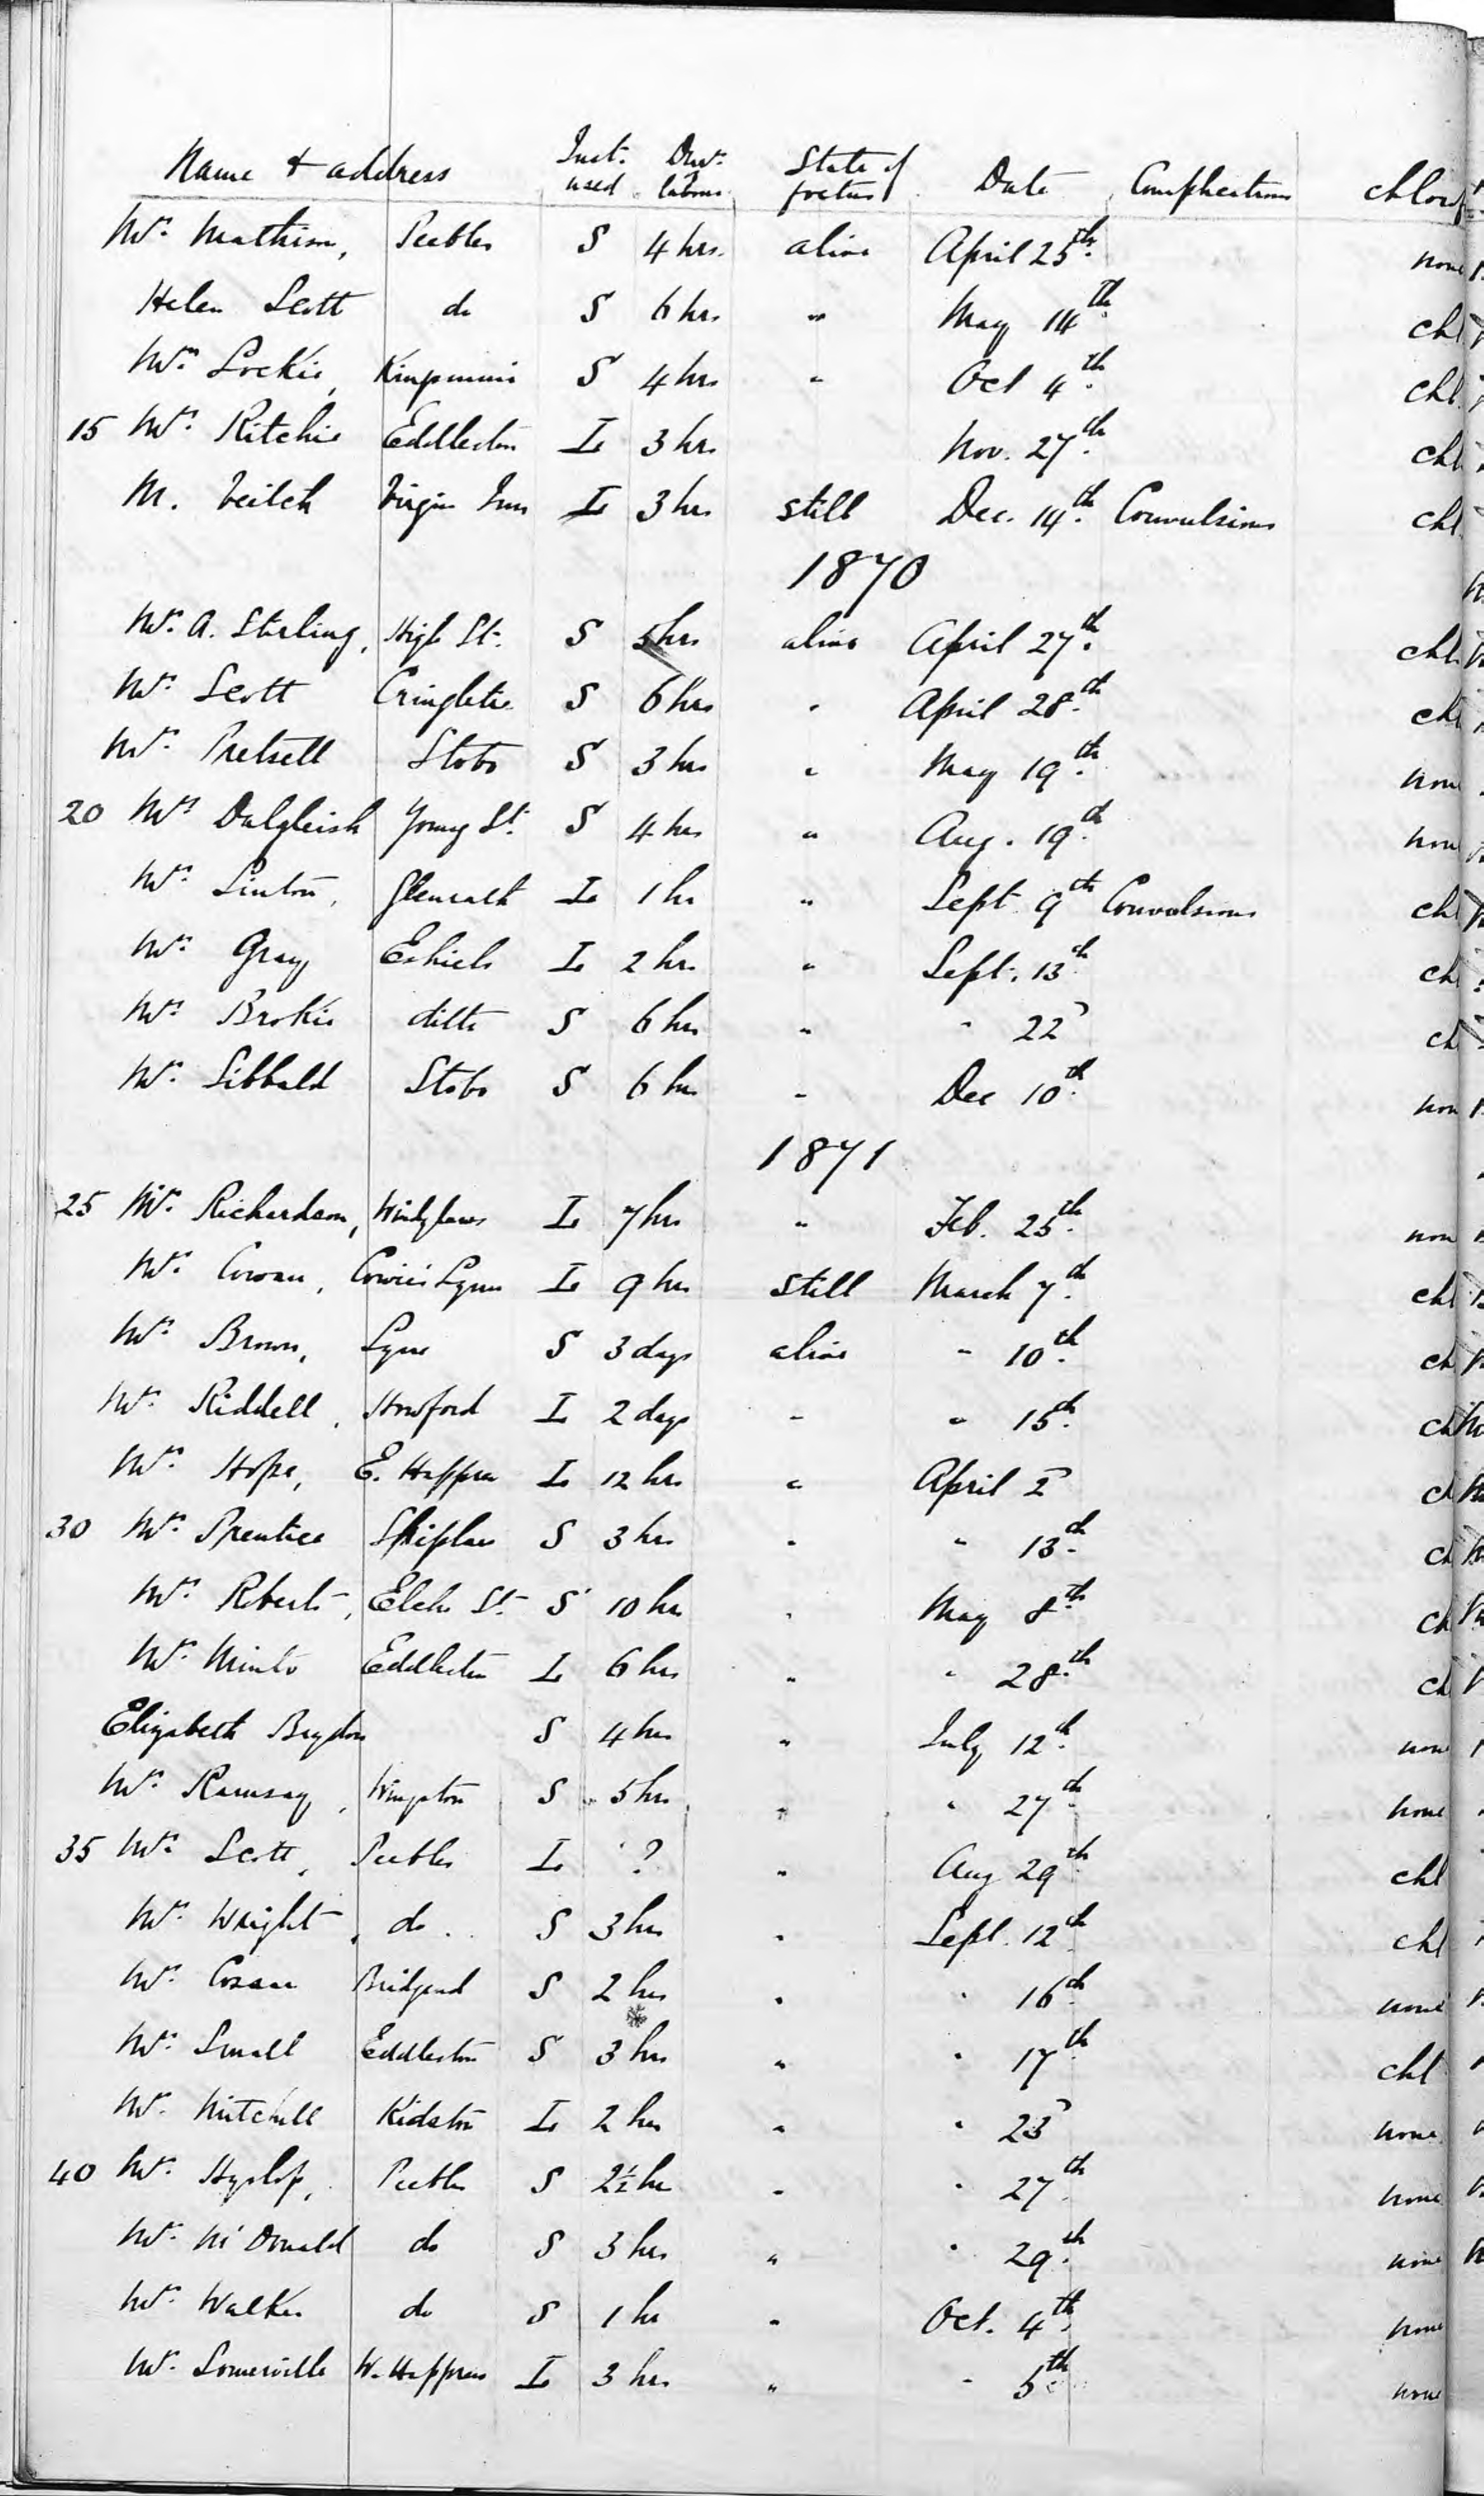 Name & address Inst. used Dur. labour State of foetus Date Complications Chlorof
Mrs. Mathison, Peebles S 4 hrs. alive April 25th. none
Helen Scott do S 6 hrs. " May 14th. chl
Mrs. Lockie, S 4 hrs " Oct 4th. chl.
15 Mrs. Ritchie Eddleston L 3 hrs Nov. 27th. chl
M. Veitch Virgin Inn L 3 hrs still Dec. 14th. Convulsions chl.
1870
Mrs. A. Stirling, High St. S 5 hrs alive April 27th. chl.
Mrs. Scott Cringletie S 6 hrs " April 28th. chl
Mrs. Pretsell Stobo S 3 hrs " May 19th. none
20 Mrs Dalgleish Young St. S 4 hrs " Aug. 19th. none
Mrs. Linton, Glenrath L 1 hr " Sept 9th Convulsions chl
Mrs. Gray Eshiels L 2 hrs " Sept. 13th chl
Mrs. Brokie ditto S 6 hrs " " 22d ch
Mrs. Sibbald Stobo S 6 hrs " Dec 10th. non
1871
25 Mrs. Richardson, Windylaws L 7 hrs " Feb. 25th. non
Mrs. Cowan, Cowie's Lynn L 9 hrs still March 7th. chl
Mrs. Brown, Lyne S 3 days alive " 10th. ch
Mrs. Riddell, Howford L 2 days " " 15th. ch
Mrs. Hope, E. Happrew L 12 hrs " April 2d ch
30 Mrs. Prentice Skiplaw S 3 hrs " " 13th. ch
Mrs. Robert, Elcho St. S 10 hrs " May 8th. ch
Mrs. Minto Eddleston L 6 hrs " " 28th. ch
Elizabeth Brydon S 4 hrs " July 12th. none
Mrs. Ramsay, S 5 hrs " " 27th. none
35 Mrs. Scott, Peebles L ? " Aug 29th chl
Mrs. Wright, do. S 3 hrs " Sept. 12th chl
Mrs. Cosar Bridgend S 2 hrs " " 16th. none
Mrs. Small Eddleston S 3 hrs " " 17th chl
Mrs. Mitchell Kidston L 2 hrs " " 23d none
40 Mrs. Hyslop, Peebles S 2½ hrs " " 27th. none
Mrs. McDonald do S 3 hrs " " 29th. none
Mrs. Walker do S 1 hr " Oct. 4th. none
Mrs. Somerville W. Happrew L 3 hrs " " 5th none